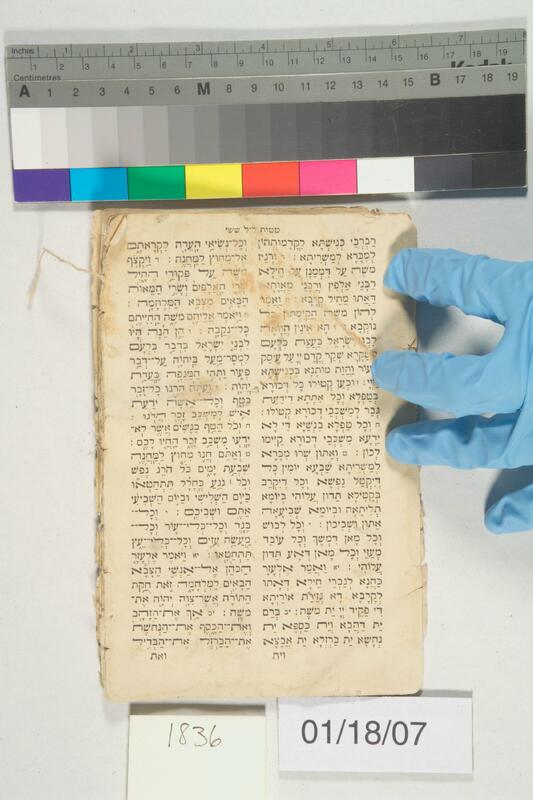 Inches 1 2 3 4 5 6 7 8
Centimetres 1 2 3 4 5 6 7 8 9 10 11 12 13 14 15 16 17 18 19
Kodak
A 1 2 3 4 5 6 M 8 9 10 11 12 13 14 15 B 17 18 19
מטות ליל ששי
רַבְרְבֵי כְנִישְׁתָּא לָקֳדָמוּתְהוֹן
לְמִבָּרָא לְמַשְׁרִיתָא׃
משה עַל דִּמְמַנָּן עַל חֵילָא
רַבָּנֵי אַלְפִין וְרַבָּנֵי מָאוָתָא
לְהוֹן משה הֲקַיֵּמְתּוּן
נוּקְבָא הָא אִינוּן הֲוָאָה
לִבְנֵי יִשְׂרָאֵל בְּעֵצַת בִּלְעָם
שְׁקַר קֳדָם יְיָ עַל עֵיסַק
פְּעוֹר וַהֲוָת מוֹתָנָא בִּכְנִישְׁתָּא
וּכְעַן קְטוֹלוּ כָל דְּכוּרָא
בְּטַפְלָא וְכָל אִתְּתָא דִּידַעַת
גְּבַר לְמִשְׁכְּבֵי דְכוּרָא קְטוֹלוּ׃
וְכֹל טַפְלָא בִּנְשַׁיָּא דִּי לָא
יְדָעָא מִשְׁכְּבֵי דְכוּרָא קַיִּימוּ
לְכוֹן׃ וְאַתּוּן שְׁרוּ מִבָּרָא
לְמַשְׁרִיתָא שַׁבְעָא יוֹמִין כָּל
דְּיִקְטֵל נַפְשָׁא וְכָל דְּיִקְרַב
בִּקְטִילָא תַּדּוּן עֲלוֹהִי בְּיוֹמָא
תְּלִיתָאָה וּבְיוֹמָא שְׁבִיעָאָה
אַתּוּן וּשְׁבִיכוֹן׃ וְכָל לְבוּשׁ
וְכָל מָאן דִּמְשַׁךְ וְכָל עוֹבַד
מְעַזֵּי וְכָל מָאן דְּאָע תַּדּוּן
עֲלוֹהִי׃ וַאֲמַר אֶלְעָזָר
כַּהֲנָא לְגֻבְרֵי חֵילָא דַּאֲתוֹ
לִקְרָבָא דָּא גְּזֵירַת אוֹרַיְתָא
דִּי פַקִּיד יְיָ יָת משה׃ בְּרַם
יָת דַּהֲבָא וְיָת כַּסְפָּא יָת
נְחָשָׁא יָת בַּרְזְלָא יָת אֲבָצָא
וית
וְכָל־נְשִׂיאֵי הָעֵדָה לִקְרָאתָם
אֶל־מִחוּץ לַמַּחֲנֶה׃ וַיִּקְצֹף
מֹשֶׁה עַל פְּקוּדֵי הֶחָיִל
שָׂרֵי הָאֲלָפִים וְשָׂרֵי הַמֵּאוֹת
הַבָּאִים מִצְּבָא הַמִּלְחָמָה׃
וַיֹּאמֶר אֲלֵיהֶם מֹשֶׁה הַחִיִּיתֶם
כָּל־נְקֵבָה׃ הֵן הֵנָּה הָיוּ
לִבְנֵי יִשְׂרָאֵל בִּדְבַר בִּלְעָם
לִמְסָר־מַעַל בַּיהוָה עַל־דְּבַר
פְּעוֹר וַתְּהִי הַמַּגֵּפָה בַּעֲדַת
יְהוָה׃ וְעַתָּה הִרְגוּ כָל־זָכָר
בַּטָּף וְכָל־אִשָּׁה יֹדַעַת
אִישׁ לְמִשְׁכַּב זָכָר הֲרֹגוּ׃
וְכֹל הַטַּף בַּנָּשִׁים אֲשֶׁר לֹא־
יָדְעוּ מִשְׁכַּב זָכָר הַחֲיוּ לָכֶם׃
וְאַתֶּם חֲנוּ מִחוּץ לַמַּחֲנֶה
שִׁבְעַת יָמִים כֹּל הֹרֵג נֶפֶשׁ
וְכֹל נֹגֵעַ בֶּחָלָל תִּתְחַטְּאוּ
בַּיּוֹם הַשְּׁלִישִׁי וּבַיּוֹם הַשְּׁבִיעִי
אַתֶּם וּשְׁבִיכֶם׃ וְכָל־
בֶּגֶד וְכָל־כְּלִי־עוֹר וְכָל־
מַעֲשֵׂה עִזִּים וְכָל־כְּלִי־עֵץ
תִּתְחַטָּאוּ׃ וַיֹּאמֶר אֶלְעָזָר
הַכֹּהֵן אֶל־אַנְשֵׁי הַצָּבָא
הַבָּאִים לַמִּלְחָמָה זֹאת חֻקַּת
הַתּוֹרָה אֲשֶׁר־צִוָּה יְהוָה אֶת־
מֹשֶׁה׃ אַךְ אֶת־הַזָּהָב
וְאֶת־הַכָּסֶף אֶת־הַנְּחֹשֶׁת
אֶת־הַבַּרְזֶל אֶת־הַבְּדִיל
ואת
1836
01/18/07